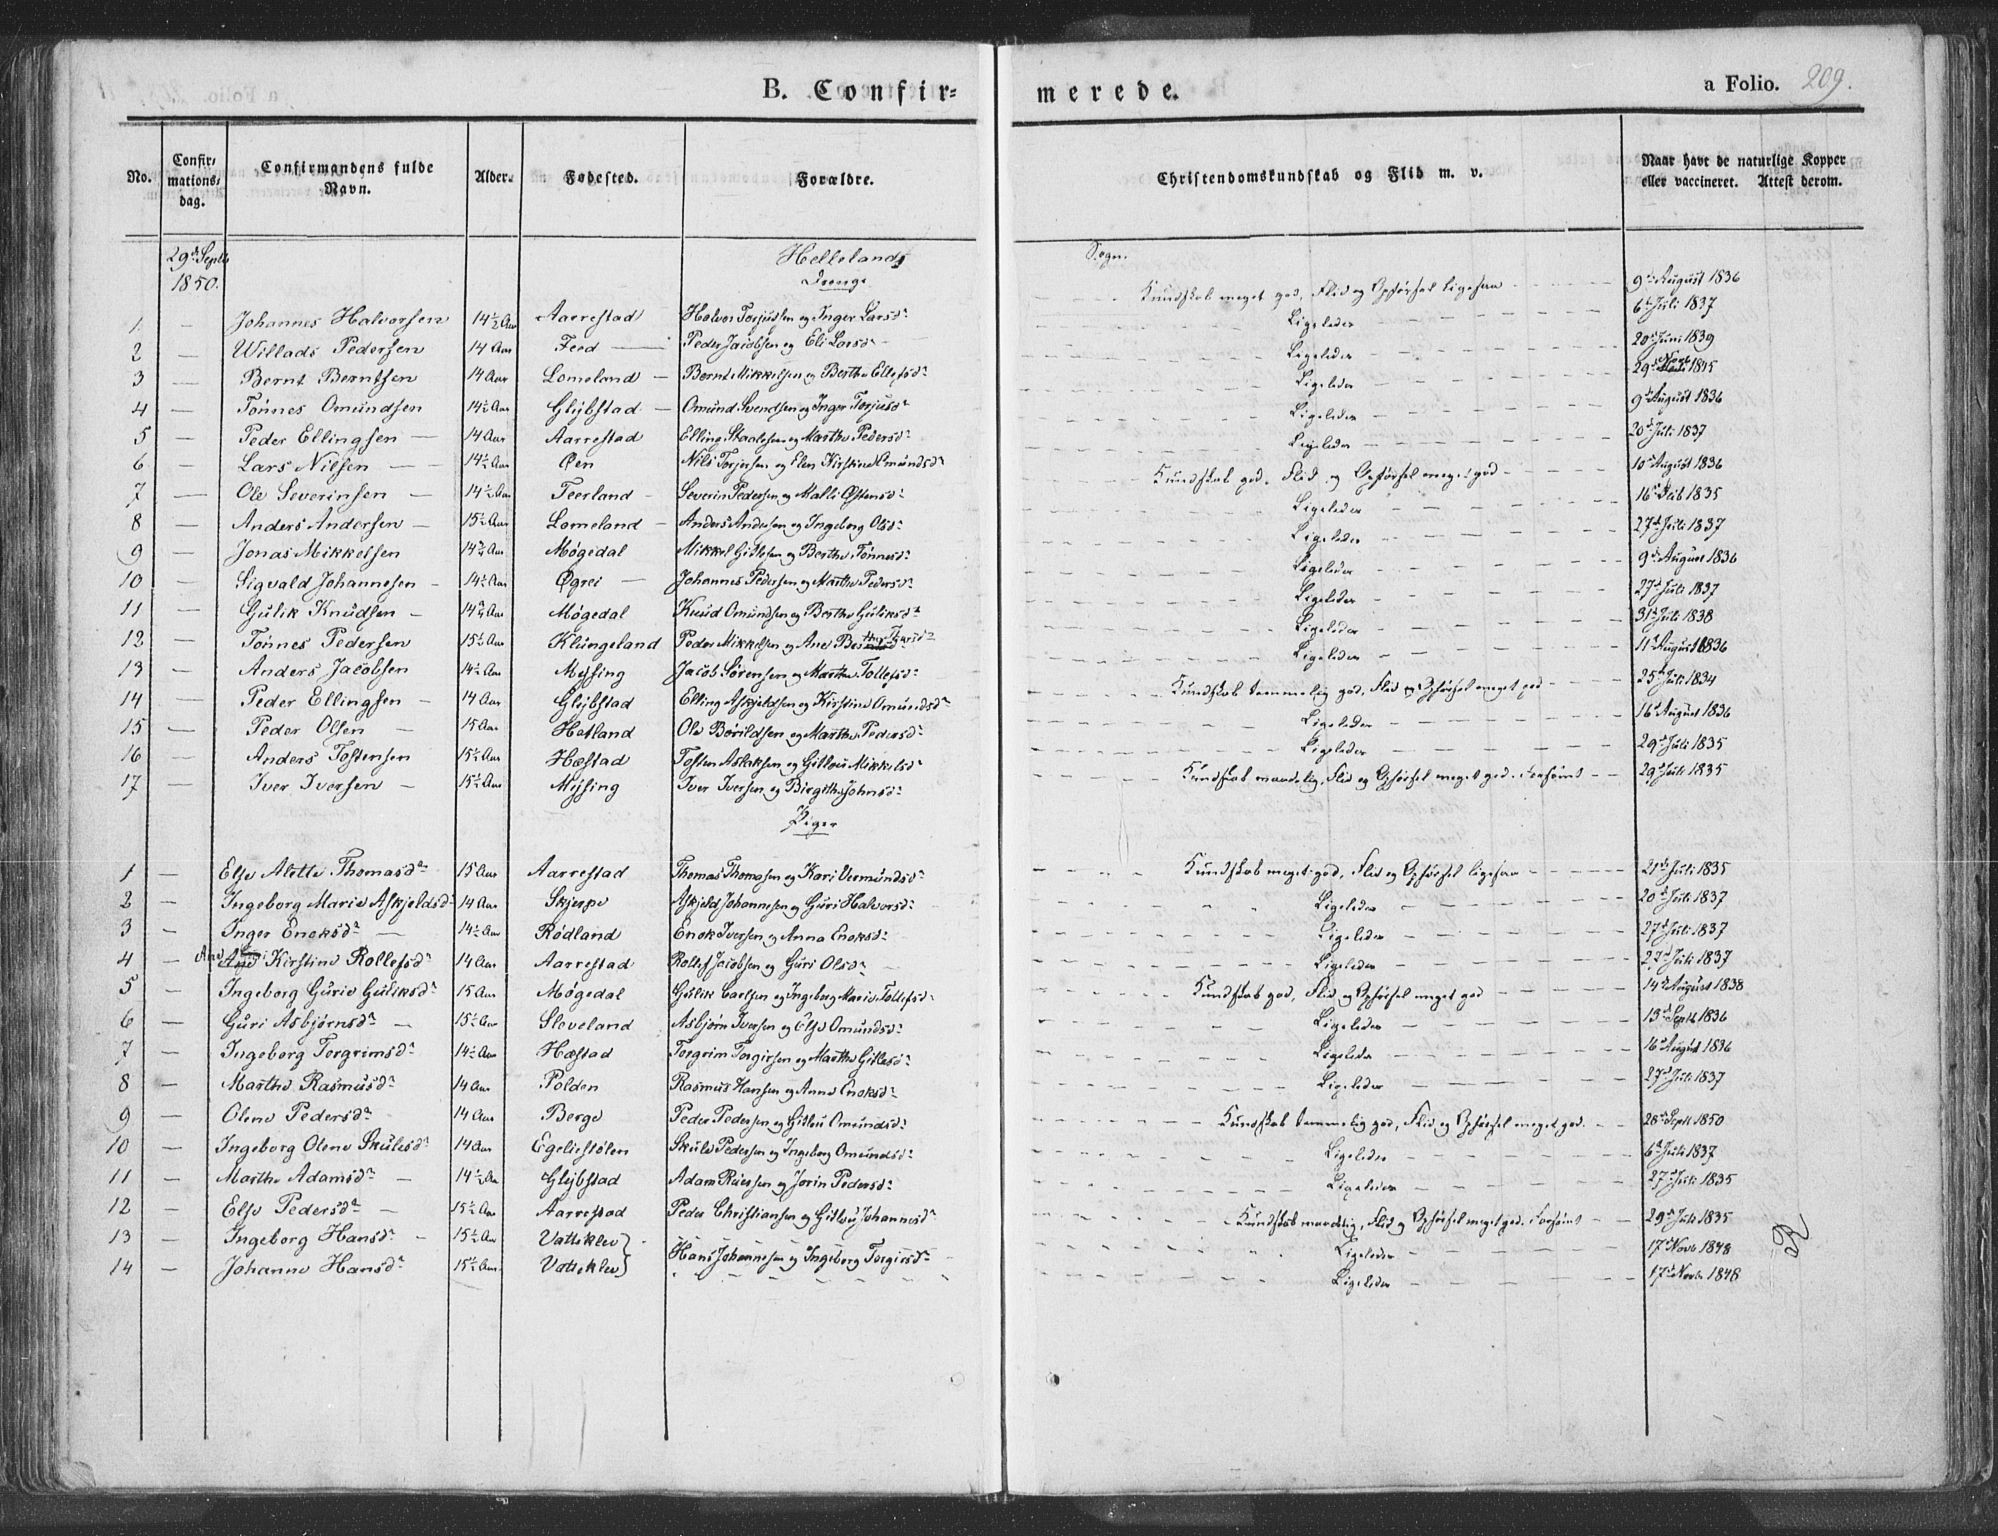 B. Confirmerede. a Folio. 209.
No. Confirmations-dag. Confirmandens fulde Navn. Alder. Fødested. Forældre. Christendomskundskab og Flid m. v. Naar havt de naturlige Kopper eller vaccineret. Attest derom.
29de Septb 1850. Hellelands Sogn.
Drenge
1 — Johannes Halvorsen 14½ Aar Aarrestad Halvor Torjussen og Inger Larsdr Kundskab meget god, Flid og Opførsel ligesaa 9de August 1836
2 — Willads Pedersen 14 Aar Feed — Peder Jacobsen og Eli Larsd Ligeledes 6te Juli 1837
3 — Bernt Berntsen 14 Aar Lomeland — Bernt Mikkelsen og Berthe Ellefsdr Ligeledes 20de Juni 1839
4 — Tönnes Omundsen 14½ Aar Glybstad — Omund Svendsen og Inger Torjusdr Ligeledes 29de Novb 1845
5 — Peder Ellingsen — 14 Aar Aarrestad Elling Staalesen og Marthe Pedersdr Ligeledes 9de August 1836
6 — Lars Nilsen — 14½ Aar Øen Nils Torjersen og Elen Kirstine Omundsdr Ligeledes 20de Juli 1837
7 — Ole Severinsen — 14½ Aar Teerland — Severin Pedersen og Malli Østensdr Kundskab god, Flid og Opførsel meget god 10de August 1836
8 — Anders Andersen — 15½ Aar Lomeland — Anders Andersen og Ingeborg Olsdr Ligeledes 16de Juli 1835
9 — Jonas Mikkelsen 14¾ Aar Møgedal Mikkel Gitlesen og Berthe Tönnesdr Ligeledes 27de Juli 1837
10 — Sigvald Johannesen — 14½ Aar Øgrei — Johannes Pedersen og Marthe Pedersdr Ligeledes 9de August 1836
11 — Gulik Knudsen — 14¾ Aar Møgedal Knud Omundsen og Berthe Guliksdr Ligeledes 27de Juli 1837
12 — Tönnes Pedersen 15½ Aar Klungeland Peder Mikkelsen og Ane Ligeledes 31te Juli 1838
13 — Anders Jacobsen 14½ Aar Mysing Jacob Sørensen og Marthe Tollefsdr Ligeledes 11te August 1836
14 — Peder Ellingsen — 14 Aar Glybstad Elling Askjeldsen og Kirstine Omundsdr Kundskab temmelig god, Flid og Opførsel meget god 25de Juli 1834
15 — Peder Olsen — 15 Aar Hetland Ole Børildsen og Marthe Pedersdr Ligeledes 16de August 1836
16 — Anders Tostensen 15½ Aar Hæstad Tosten Aslaksen og Gitlou Mikkelsd Ligeledes 29de Juli 1835
17 — Iver Iversen — 15½ Aar Mysing Iver Iversen og Birgithe Johnsdr Kundskab maadelig, Flid og Opførsel meget god. Forsømt 29de Juli 1835
Piger
1 — Else Alette Thomasdr 15 Aar Aarrestad Thomas Thomasen og Kari Vermundsdr Kundskab meget god, Flid og Opførsel ligesaa 21de Juli 1835
2 — Ingeborg Marie Askjeldsdr 14 Aar Skjerpe Askjeld Johannesen og Guri Halvorsdr Ligeledes 20de Juli 1837
3 — Inger Enoksdr — 14½ Aar Rødland Enok Iversen og Anna Enoksdr Ligeledes 27de Juli 1837
4 — Ane Kirstine Rollefsdr 14 Aar Aarrestad Rollef Jacobsen og Guri Olsdr Ligeledes 27de Juli 1837
5 — Ingeborg Gurie Guliksdr 15 Aar Møgedal Gulik Carlsen og Ingeborg Marie Tollefsdr Kundskab god, Flid og Opførsel meget god 14de August 1838
6 — Guri Asbjørnsdr — 15½ Aar Sleveland Asbjørn Iversen og Else Omundsdr Ligeledes 13de Septb 1836
7 — Ingeborg Torgrimsdr 14½ Aar Hæstad Torgrim Torgirsen og Marthe Gitlesdr Ligeledes 16de August 1836
8 — Marthe Rasmusdr 14 Aar Polden Rasmus Hansen og Anne Enoksdr Ligeledes 27de Juli 1837
9 — Olene Pedersdr 14 Aar Berge Peder Pedersen og Gitlou Omundsdr Kundskab temmelig god, Flid og Opførsel meget god. 28de Septb 1850
10 — Ingeborg Olene Skulesdr 14 Aar Egeliestølen Skule Pedersen og Ingeborg Omundsdr Ligeledes 6te Juli 1837
11 — Marthe Adamsdr — 14½ Aar Glybstad Adam Reiersen og Jorin Pedersdr Ligeledes 27de Juli 1835
12 — Else Pedersdr — 15½ Aar Aarrestad Peder Christiansen og Gitlou Johannesdr Kundskab maadelig, Flid og Opførsel meget god. Forsømt 29de Juli 1835
13 — Ingeborg Hansdr — 15½ Aar Vatteklev Hans Johannesen og Ingeborg Torgirsdr Ligeledes 17de Novb 1848
14 — Johanne Hansdr 15½ Aar Vatteklev Ligeledes 17de Novb 1848